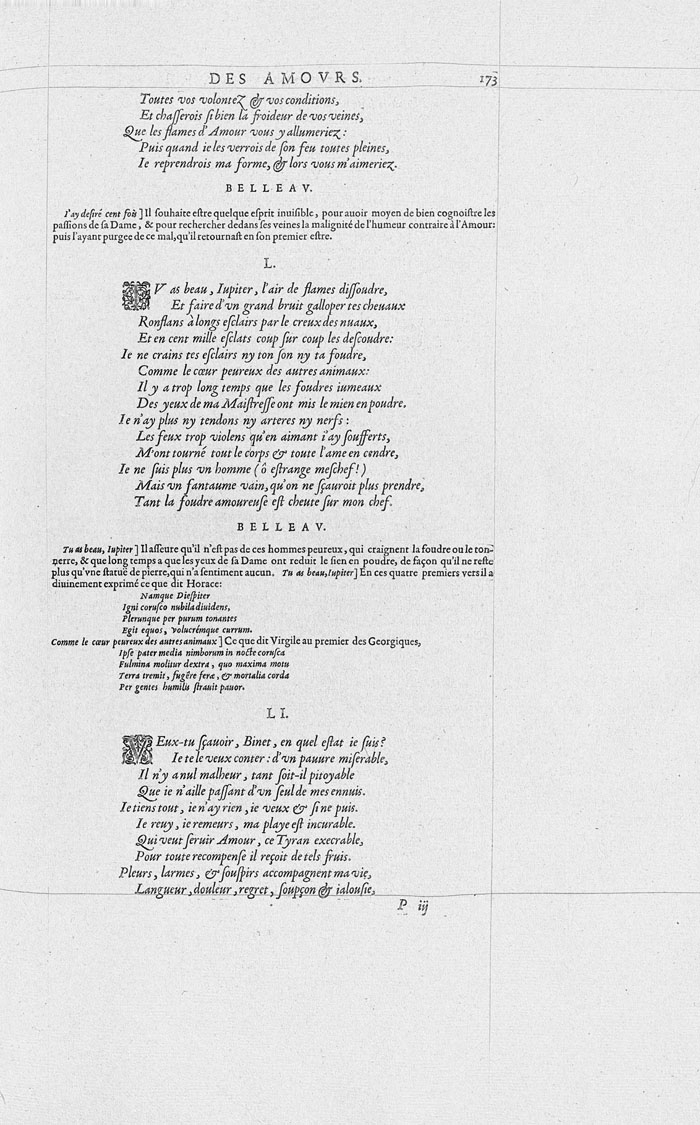 DES AMOVRS. 173
Toutes vos volontez & vos conditions,
Et chaſſerois ſi bien la froideur de vos veines,
Que les flames d'Amour vous y allumeriez:
Puis quand ie les verrois de ſon feu toutes pleines,
Ie reprendrois ma forme, & lors vous m'aimeriez.
BELLEAV.
I'ay deſiré cent fois ] Il ſouhaite eſtre quelque eſprit inuiſible, pour auoir moyen de bien cognoiſtre les
paſſions de ſa Dame, & pour rechercher dedans ſes veines la malignité de l'humeur contraire à l'Amour:
puis l'ayant purgee de ce mal, qu'il retournaſt en ſon premier eſtre.
L.
TV as beau, Iupiter, l'air de flames diſſoudre,
Et faire d'vn grand bruit galloper tes cheuaux
Ronflans à longs eſclairs par le creux des nuaux,
Et en cent mille eſclats coup ſur coup les deſcoudre:
Ie ne crains tes eſclairs ny ton ſon ny ta foudre,
Comme le cœur peureux des autres animaux:
Il y a trop long temps que les foudres iumeaux
Des yeux de ma Maiſtreſſe ont mis le mien en poudre.
Ie n'ay plus ny tendons ny arteres ny nerfs:
Les feux trop violens qu'en aimant i'ay ſoufferts,
M'ont tourné tout le corps & toute l'ame en cendre,
Ie ne ſuis plus vn homme (ô eſtrange meſchef!)
Mais vn fantaume vain, qu'on ne ſçauroit plus prendre,
Tant la foudre amoureuſe eſt cheute ſur mon chef.
BELLEAV.
Tu as beau, Iupiter ] Il aſſeure qu'il n'eſt pas de ces hommes peureux, qui craignent la foudre ou le ton-
nerre, & que long temps a que les yeux de ſa Dame ont reduit le ſien en poudre, de façon qu'il ne reſte
plus qu'vne ſtatuë de pierre, qui n'a ſentiment aucun. Tu as beau, Iupiter] En ces quatre premiers vers il a
diuinement exprimé ce que dit Horace:
Namque Dieſpiter
Igni coruſco nubila diuidens,
Plerunque per purum tonantes
Egit equos, volucrémque currum.
Comme le cœur peureux des autres animaux ] Ce que dit Virgile au premier des Georgiques,
Ipſe pater media nimborum in nocte coruſca
Fulmina molitur dextra, quo maxima motu
Terra tremit, fugêre feræ, & mortalia corda
Per gentes humilis ſtrauit pauor.
LI.
VEux-tu ſçauoir, Binet, en quel eſtat ie ſuis?
Ie te le veux conter: d'vn pauure miſerable,
Il n'y a nul malheur, tant ſoit-il pitoyable
Que ie n'aille paſſant d'vn ſeul de mes ennuis.
Ie tiens tout, ie n'ay rien, ie veux & ſi ne puis.
Ie reuy, ie remeurs, ma playe eſt incurable.
Qui veut ſeruir Amour, ce Tyran execrable,
Pour toute recompenſe il reçoit de tels fruis.
Pleurs, larmes, & ſouſpirs accompagnent ma vie,
Langueur, douleur, regret, ſoupçon & ialouſie,
P iij